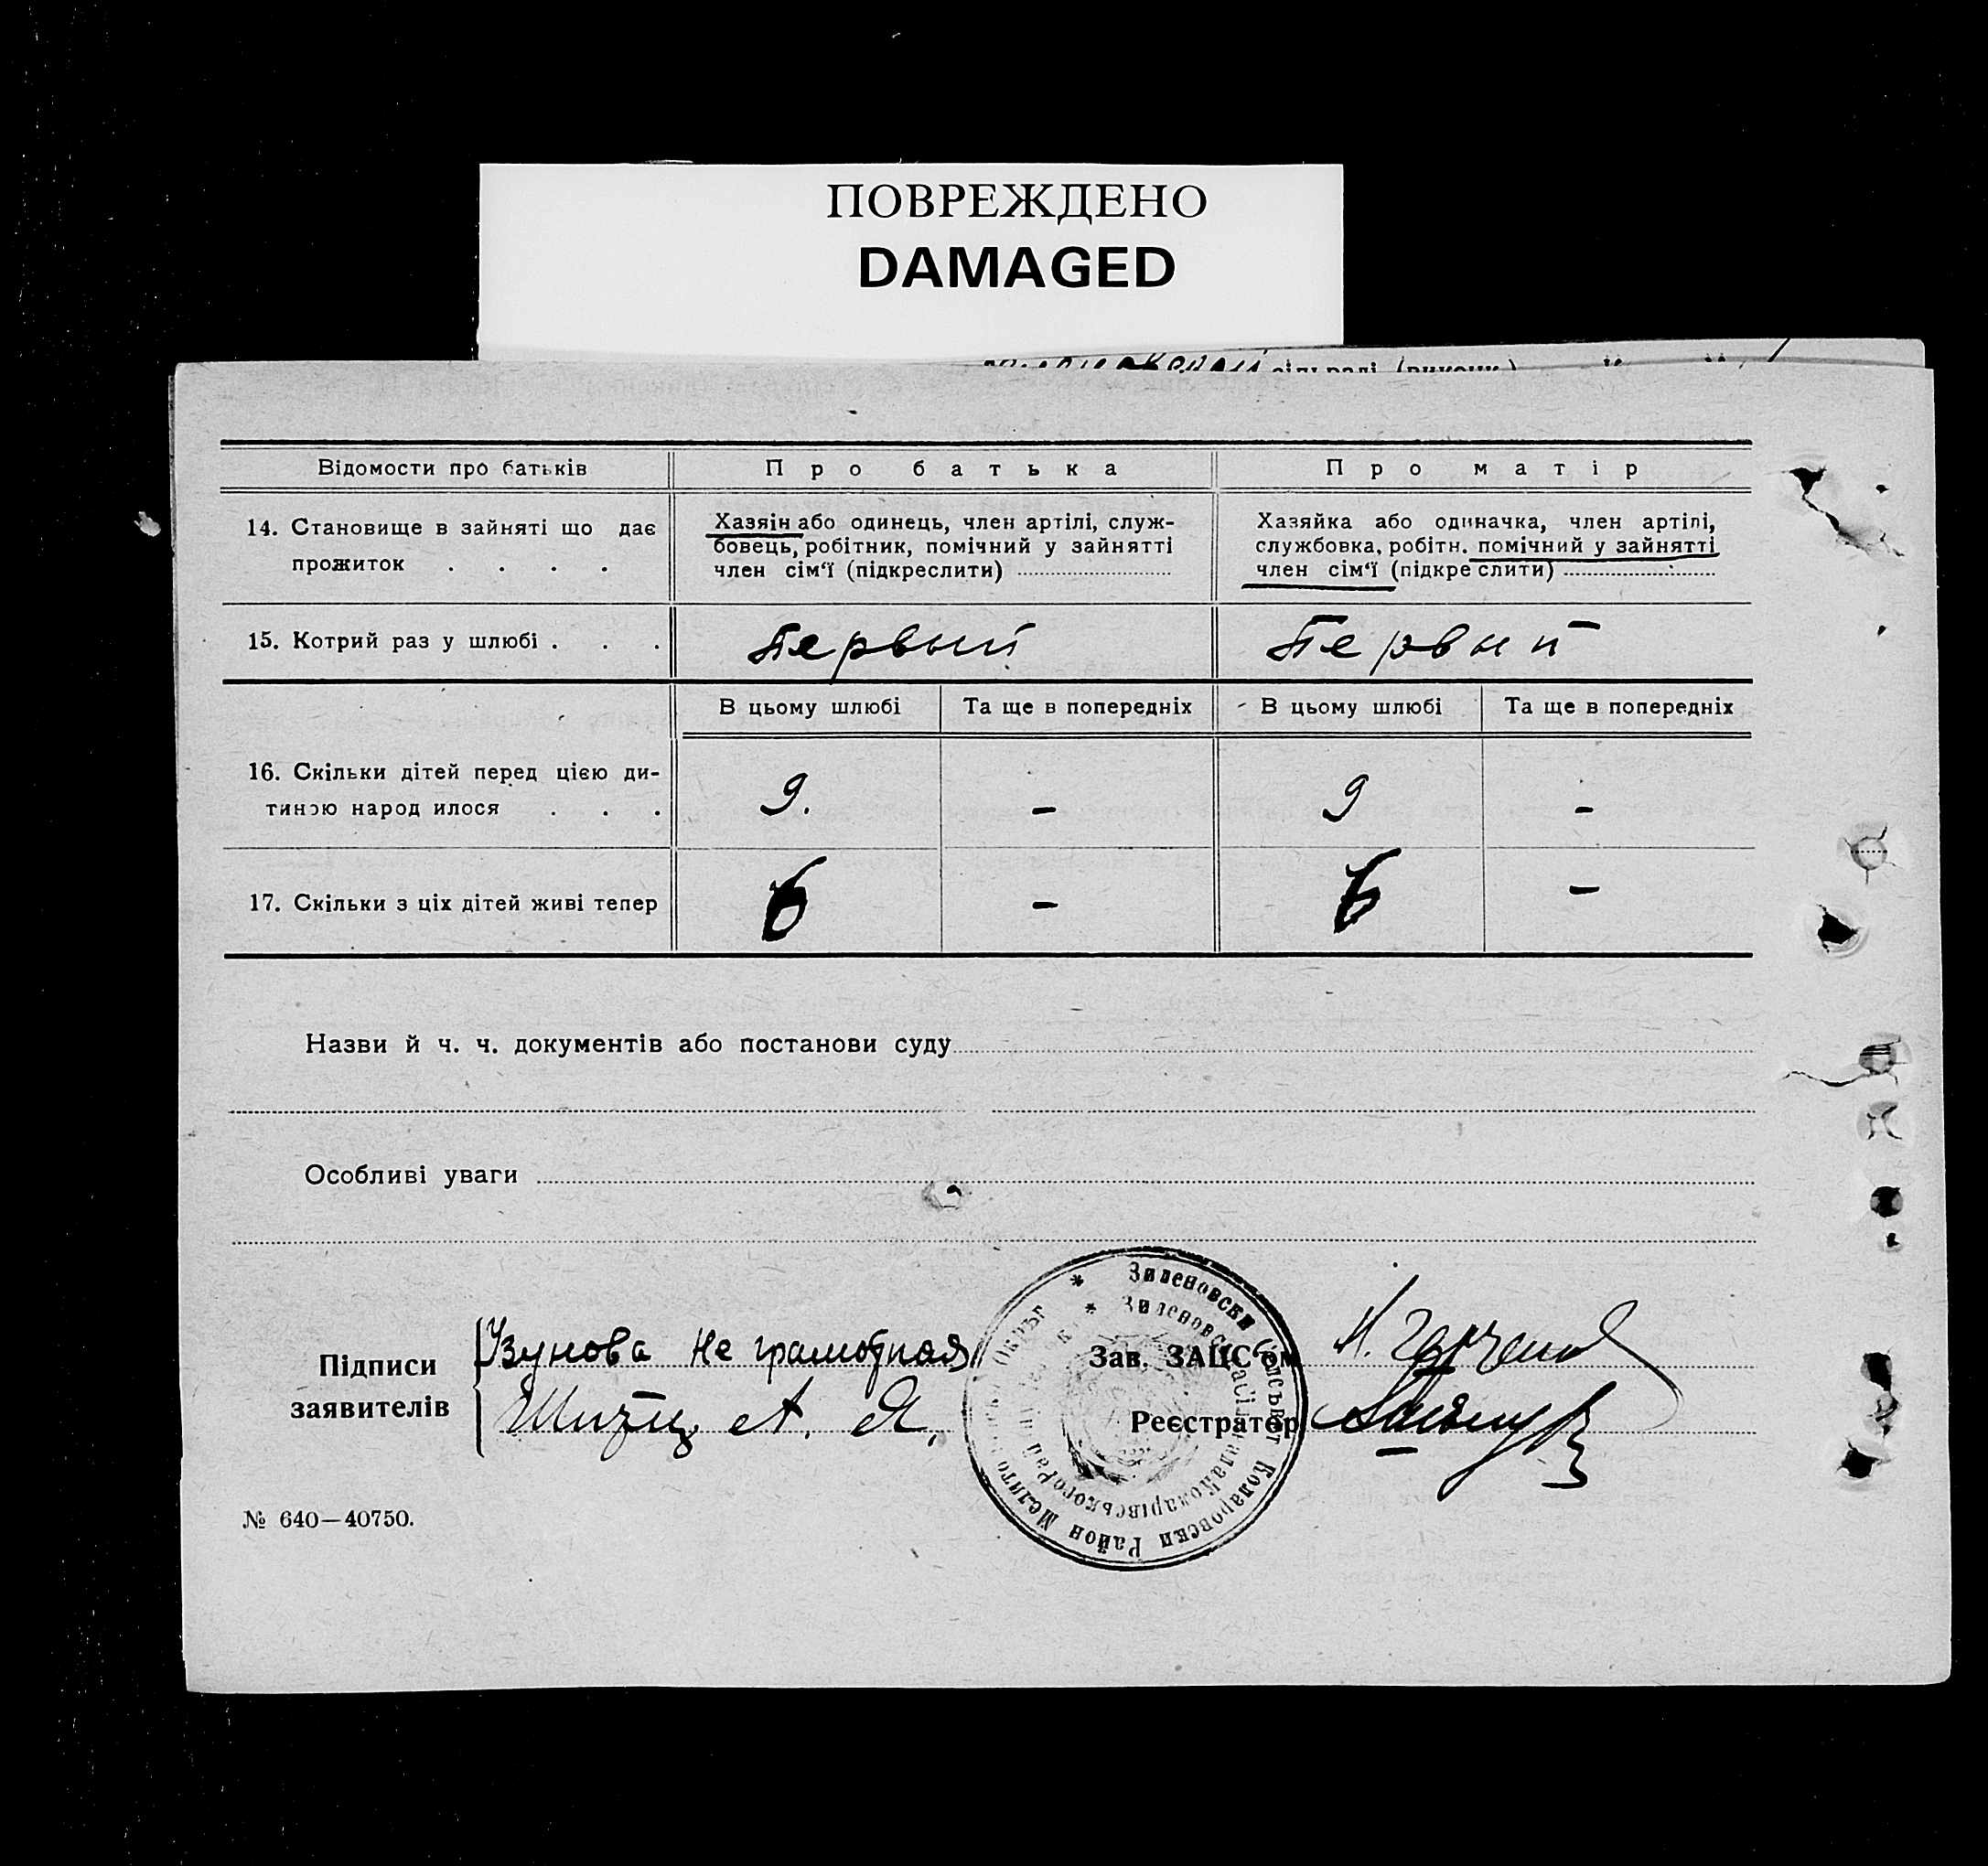 ПОВРЕЖДЕНО
DAMAGED
сільраді (виконк.)
Відомости про батьків
Про батька
Про матір
14. Становище в зайняті що дає
прожиток . . . .
Хазяїн або одинець, член артілі, служ-
бовець, робітник, помічний у зайнятті
член сім'ї (підкреслити)
Хазяйка або одиначка, член артілі,
службовка, робітн. помічний у зайнятті
член сім'ї (підкреслити)
15. Котрий раз у шлюбі . . .
Первый
Первый
В цьому шлюбі
Та ще в попередніх
В цьому шлюбі
Та ще в попередніх
16. Скільки дітей перед цією ди-
тиною народилося . . .
9.
–
9
–
17. Скільки з ціх дітей живі тепер
6
–
6
–
Назви й ч. ч. документів або постанови суду
Особливі уваги
Підписи
заявителів
Узунова не грамотная
А. Я.
Зав. ЗАЦС'ом
Реєстратор
Зиленовски Силсьвет Коларовски Район
№ 640—40750.